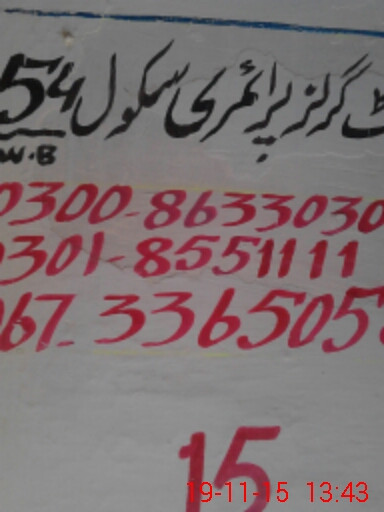 گرلز پرائمری سکول 54
W.B
0300-8633030
0301-8551111
067-336505
15
19-11-15 13:43